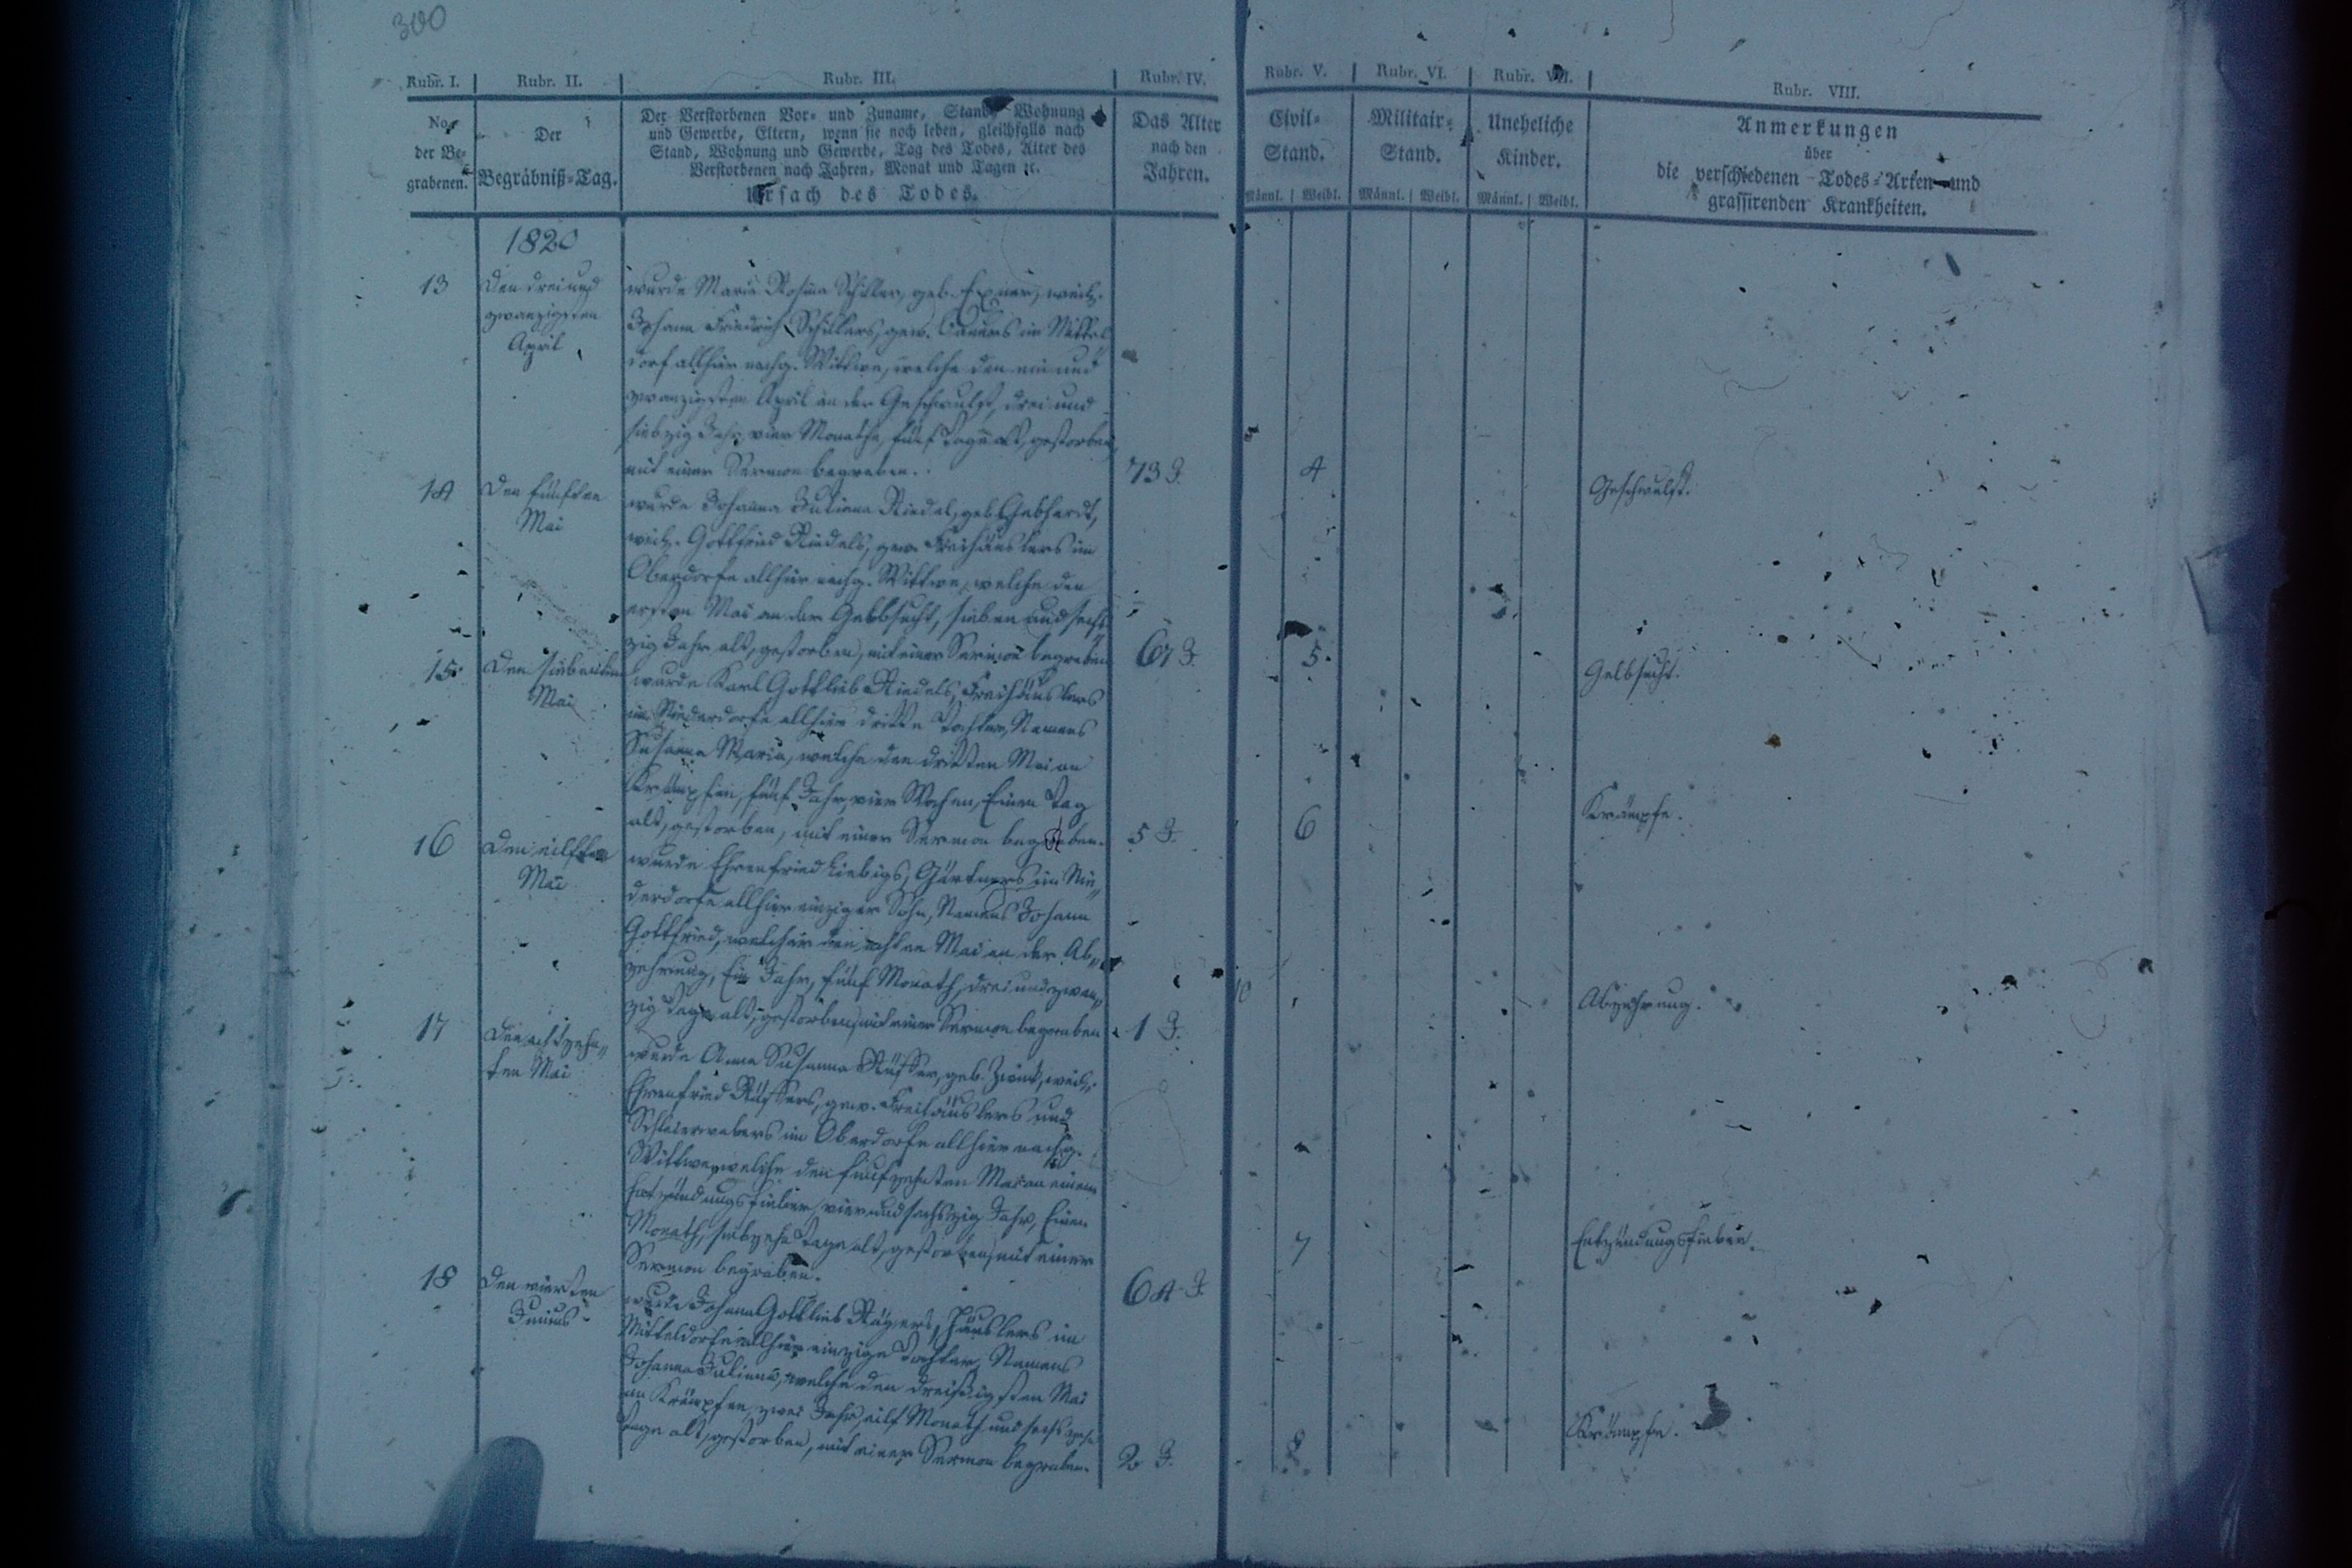 300
Rubr. I. Rubr. II. Rubr. III. Rubr. IV. Rubr. V. Rubr. VI. Rubr. VII. Rubr. VIII.
No.
der Be-
grabenen.
Der
Begräbniß-Tag.
Der Verstorbenen Vor- und Zuname, Stand, Wohnung
und Gewerbe, Eltern, wenn sie noch leben, gleichfalls nach
Stand, Wohnung und Gewerbe, Tag des Todes, Alter des
Verstorbenen nach Jahren, Monat und Tagen ꝛc.
Ursach des Todes.
Das Alter
nach den
Jahren.
Civil-
Stand.
Männl. Weibl.
Militair-
Stand.
Männl. Weibl.
Uneheliche
Kinder.
Männl. Weibl.
Anmerkungen
über
die verschiedenen Todes-Arten und
grassirenden Krankheiten.
1820
13
Den drei und
zwanzigsten
April
wurde Maria Rosina Schüller, geb. Exner, weil.
Johann Friedrich Schüllers, gew. Bauers im Mittel
dorf allhier nachg. Wittwe, welche den ein und
zwanzigsten April an der Geschwulst, drei und
siebzig Jahr, vier Monathe, fünf Tage alt, gestorben,
mit einer Sermon begraben.
73 J.
4
Geschwulst.
14
Den fünften
Mai
wurde Johanna Juliana Riedel, geb. Gebhardt,
weil. Gottfried Riedels, gew. Freihäuslers im
Oberdorfe allhier nachg. Wittwe, welche den
ersten Mai an der Gelbsucht, sieben und sech
zig Jahr alt, gestorben, mit einer Sermon begraben
67 J.
5.
Gelbsucht.
15.
Den siebenten
Mai
wurde Karl Gottlieb Riedels, Freihäuslers
im Niederdorfe allhier dritte Tochter, Namens
Susanna Maria, welche den dritten Mai an
Krämpfen, fünf Jahr, vier Wochen, Einen Tag
alt, gestorben, mit einer Sermon begraben.
5 J.
6
Krämpfe.
16
Den eilften
Mai
wurde Ehrenfried Liebigs, Gärtners im Nie„
derdorfe allhier einziger Sohn, Namens Johann
Gottfried, welcher den achten Mai an der Ab„
zehrung, Ein Jahr, fünf Monath, drei und zwan„
zig Tage alt, gestorben, mit einer Sermon begraben
1 J.
10
Abzehrung.
17
Den achtzehn„
ten Mai
wurde Anna Susanna Rüffer, geb. Zwick, weil.
Ehrenfried Rüffers, gew. Freihäuslers und
Schleierwebers im Oberdorfe allhier nachg.
Wittwe, welche den fünfzehnten Mai an einem
Entzündungsfieber, vier und sechszig Jahr, Einen
Monath, siebzehn Tage alt, gestorben, mit einer
Sermon begraben.
64 J.
7
Entzündungsfieber.
18
Den vierten
Junius
wurde Johann Gottlieb Rägers, Häuslers im
Mitteldorfe allhier einzige Tochter, Namens
Johanna Juliana, welche den dreißigsten Mai
an Krämpfen, zwei Jahr, eilf Monath und sechszehn
Tage alt, gestorben, mit einer Sermon begraben.
2 J.
8
Krämpfe.